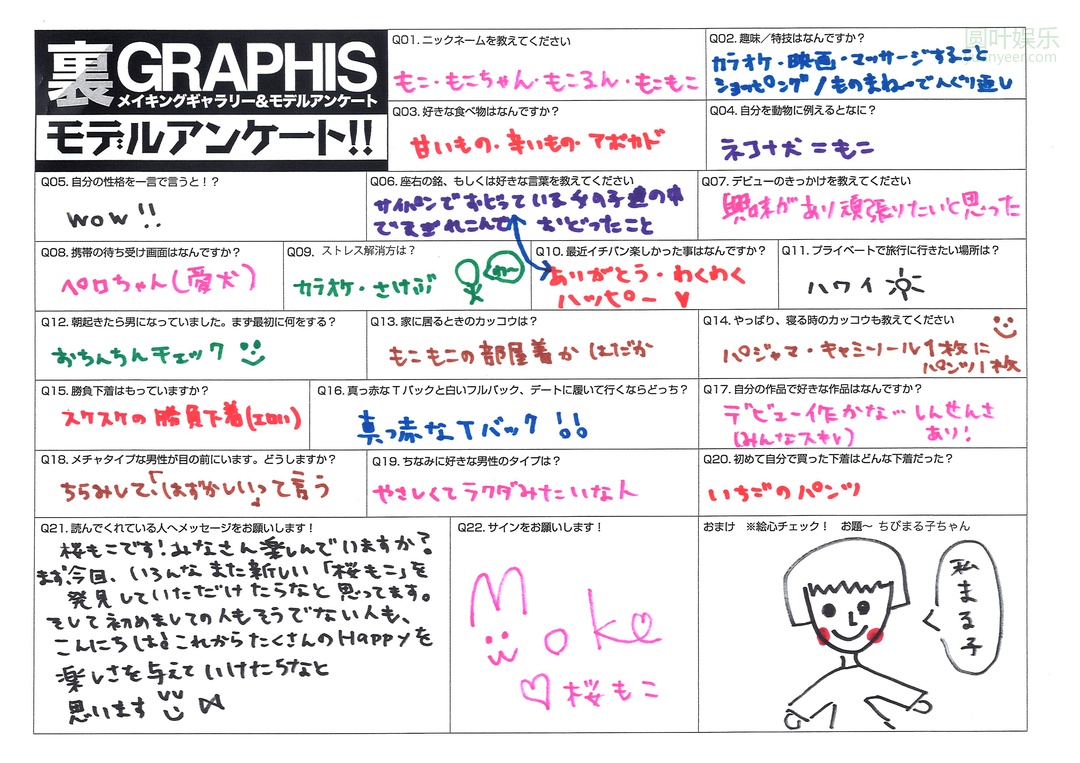 圆叶娱乐
裏GRAPHIS
メイキングギャラリー&モデルアンケート
モデルアンケート!!
Q01. ニックネームを教えてください
もこ・もこちゃん・もこるん・もこもこ
Q02. 趣味／特技はなんですか？
カラオケ・映画・マッサージすること
ショッピング/ものまね〜でんぐり返し
Q03. 好きな食べ物はなんですか？
甘いもの・辛いもの・アボカド
Q04. 自分を動物に例えるとなに？
ネコ+犬=もこ
Q05. 自分の性格を一言で言うと！？
wow!!
Q06. 座右の銘、もしくは好きな言葉を教えてください
サイパンでおどっている女の子達の中
でまぎれこんで おどったこと
Q07. デビューのきっかけを教えてください
興味があり頑張りたいと思った
Q08. 携帯の待ち受け画面はなんですか？
ペロちゃん(愛犬)
Q09. ストレス解消方は？
カラオケ・さけぶ
Q10. 最近イチバン楽しかった事はなんですか？
ありがとう・わくわく
ハッピー
Q11. プライベートで旅行に行きたい場所は？
ハワイ
Q12. 朝起きたら男になっていました。まず最初に何をする？
おちんちんチェック
Q13. 家に居るときのカッコウは？
もこもこの部屋着かはだか
Q14. やっぱり、寝る時のカッコウも教えてください
パジャマ・キャミソール1枚に
パンツ1枚
Q15. 勝負下着はもっていますか？
スケスケの勝負下着(エロい)
Q16. 真っ赤なTバックと白いフルバック、デートに履いて行くならどっち？
真っ赤なTバック!!
Q17. 自分の作品で好きな作品はなんですか？
デビュー作かな… しんせんさ
(みんなスキ) あり!
Q18. メチャタイプな男性が目の前にいます。どうしますか？
ちらみして、「はずかしいっ」って言う
Q19. ちなみに好きな男性のタイプは？
やさしくてラクダみたいな人
Q20. 初めて自分で買った下着はどんな下着だった？
いちごのパンツ
Q21. 読んでくれている人へメッセージをお願いします！
桜もこです!みなさん楽しんでいますか?
まず今回、いろんなまた新しい「桜もこ」を
発見していただけたらなと思ってます。
そして初めましての人もそうでない人も、
こんにちは♪これからたくさんのHappyを
楽しさを与えていけたらなと
思います
Q22. サインをお願いします！
Moko
♡桜もこ
おまけ ※絵心チェック！ お題〜 ちびまる子ちゃん
私まる子